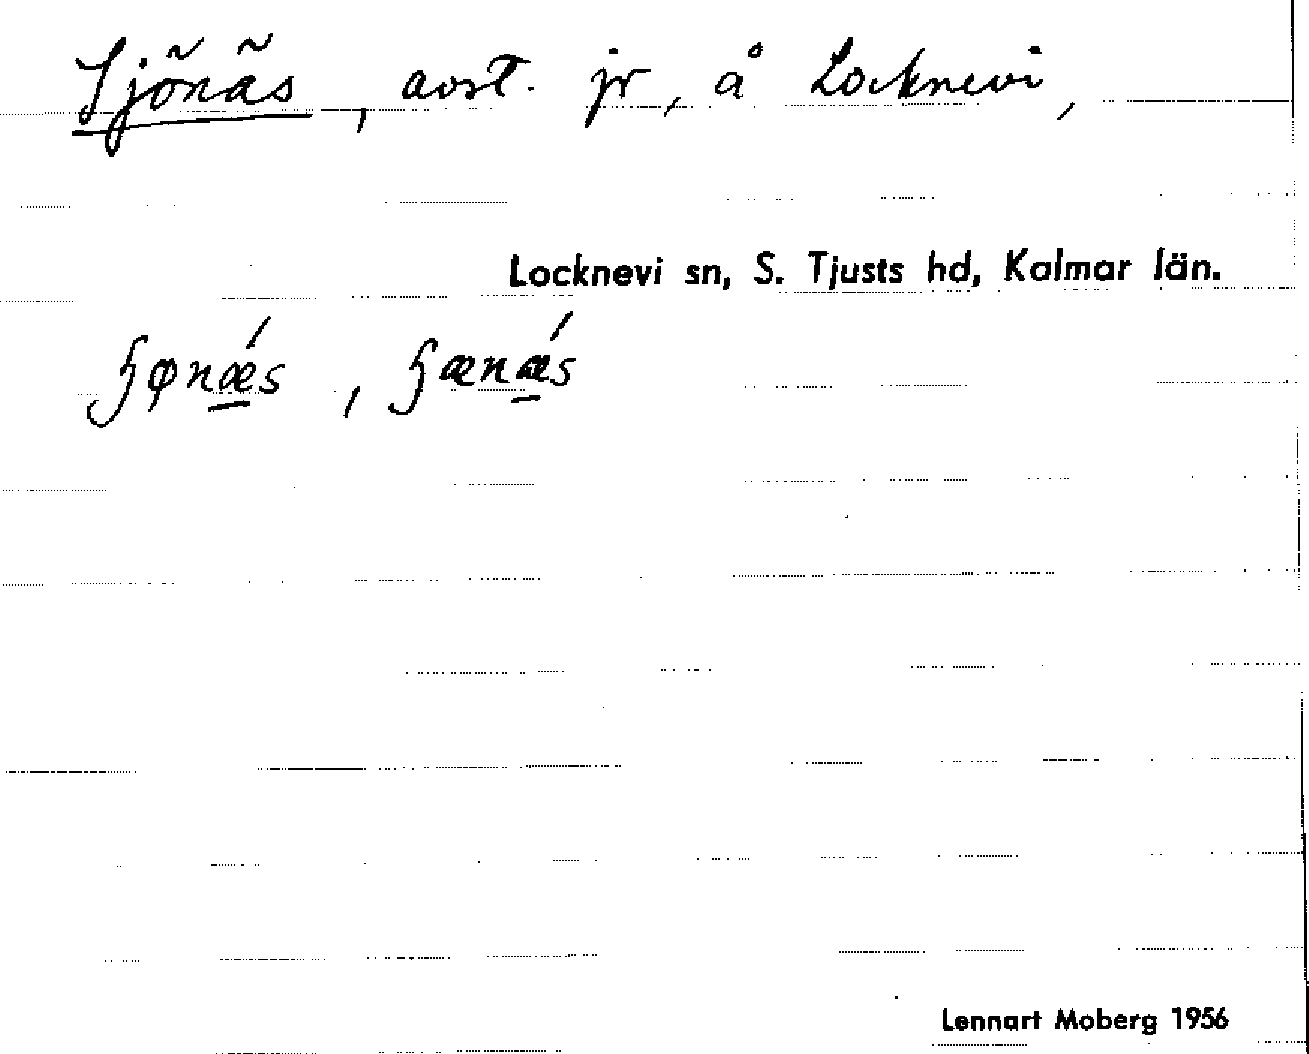 Sjönäs, avst. jr, å Locknevi,
Locknevi sn, S. Tjusts hd, Kalmar län.
ɧønǽs, ɧænǽs
Lennart Moberg 1956